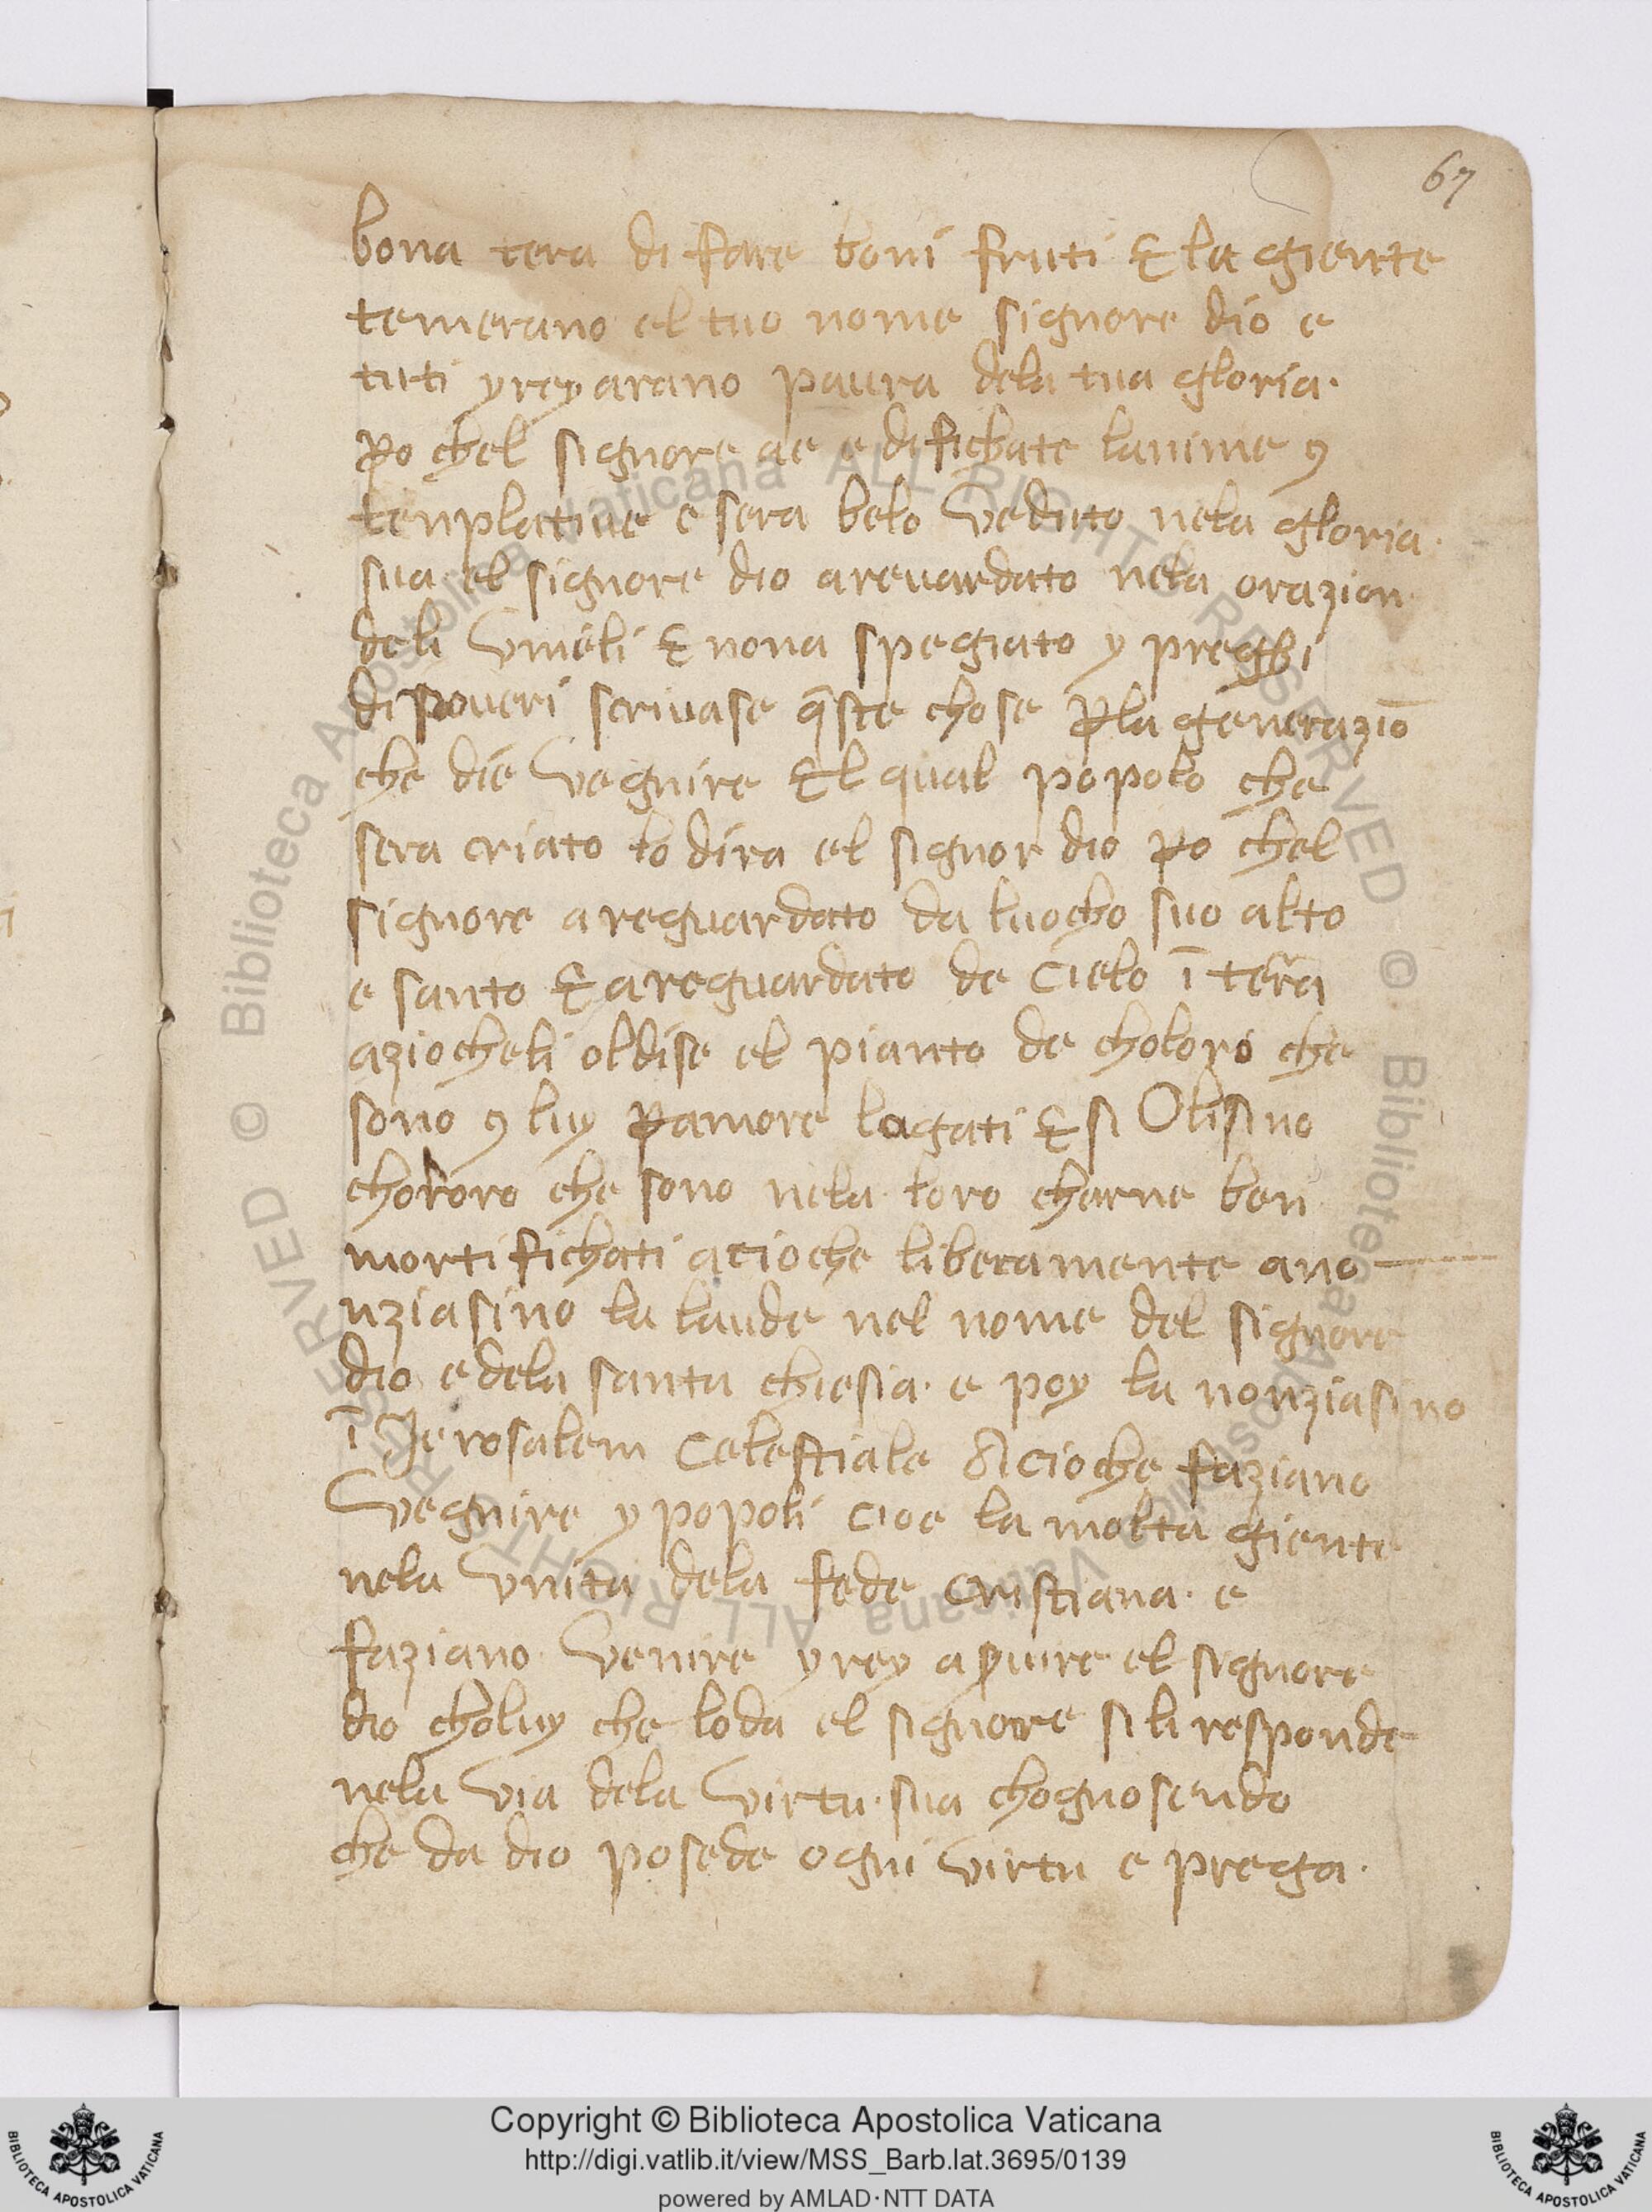 67
bona tera di fare boni fruti & la giente
temerano el tuo nome signore dio e
tuti y rey arano paura dela tua gloria.
ꝑo chel signore ae edifichate lanime ꝯ
tenplative e sera belo veduto nela gloria.
sua el signore dio a revardato nela orazion
deli vmeli & nona spegiato y preghi
di poveri scrivase q̄ste chose ꝑla generaziō
che die vegnire El qual popolo che
sera criato lodira el signor dio ꝑo chel
signore a reguardato da luocho suo alto
e santo & a reguardato de cielo ī tera
aziocheli oldise el pianto de choloro che
sono ꝯ luy ꝑ amore lagati & si Olisino
choloro che sono nela loro charne ben
mortifichati acioche liberamente ano
nziasino la laude nel nome del signore
dio e dela santa chiesia. e poy la nonziasino
ī Jerosalem celestiale Acioche faziano
vegnire y popoli cioe la molta giente
nela vnita dela fede cristiana. e
faziano venire y rey a ꝑvire el signore
dio choluy che loda el signore si li responde
nela via dela virtu. sua chognosendo
che da dio posede ogni virtu e prega.
Copyright © Biblioteca Apostolica Vaticana
http://digi.vatlib.it/view/MSS_Barb.lat.3695/0139
powered by AMLAD·NTT DATA
BIBLIOTECA APOSTOLICA VATICANA
BIBLIOTECA APOSTOLICA VATICANA